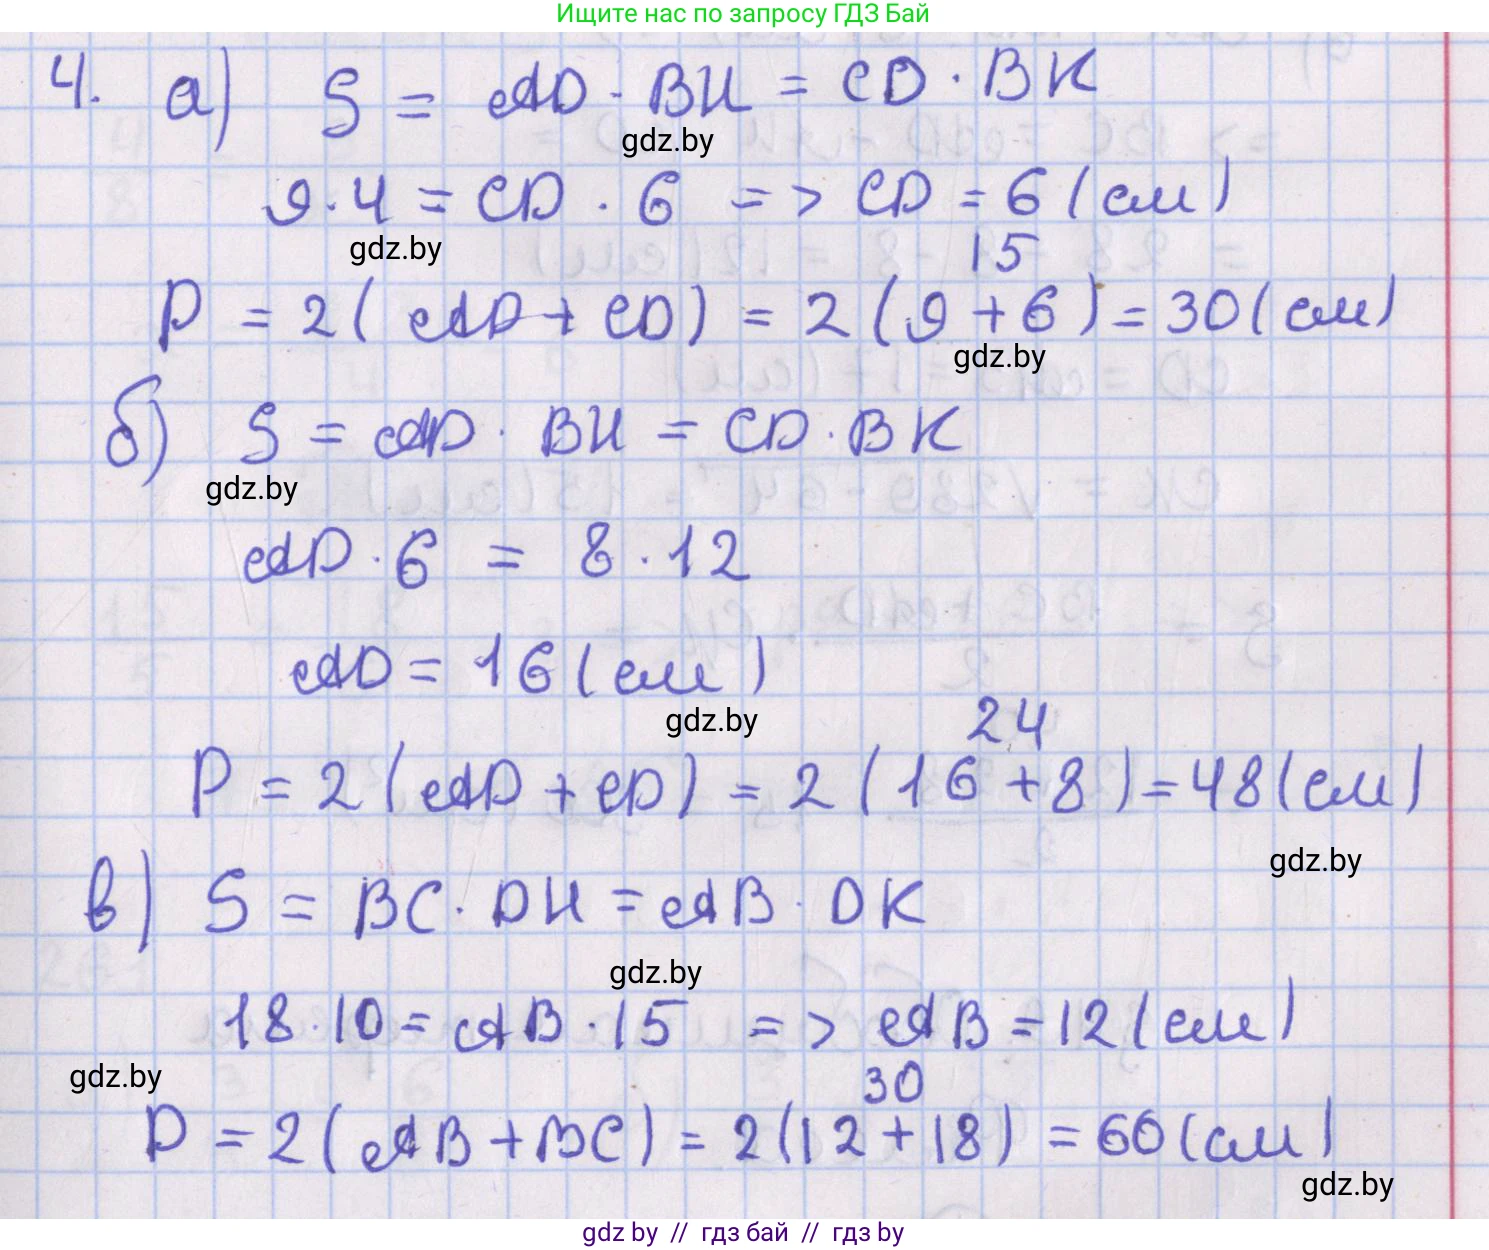 Ищите нас по запросу ГДЗ Бай
4. а) S = AD · BH = CD · BK
gdz.by
9 · 4 = CD · 6 => CD = 6 (см)
gdz.by
15
P = 2 ( AD + CD ) = 2 ( 9 + 6 ) = 30 ( см )
gdz.by
б) S = AD · BH = CD · BK
gdz.by
AD · 6 = 8 · 12
AD = 16 ( см )
gdz.by
24
P = 2 ( AD + CD ) = 2 ( 16 + 8 ) = 48 ( см )
gdz.by
в) S = BC · DH = AB · DK
gdz.by
18 · 10 = AB · 15 => AB = 12 ( см )
gdz.by
30
P = 2 ( AB + BC ) = 2 ( 12 + 18 ) = 60 ( см )
gdz.by
gdz.by // гдз бай // гдз by